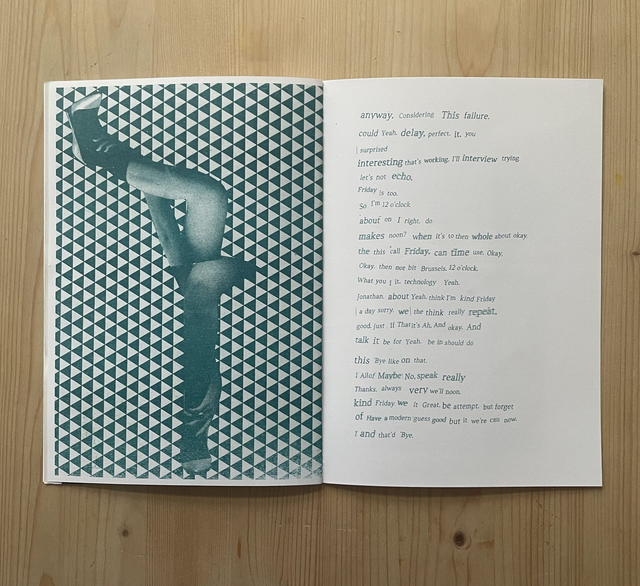 anyway, Considering This failure.
could Yeah. delay, perfect. it, you
I surprised
interesting that's working, I'll interview trying
let's not echo,
Friday is too.
So I'm 12 o'clock
about on I right. do
makes noon? when it's to then whole about okay.
the this call Friday, can time use. Okay.
Okay. then not bit Brussels, 12 o'clock.
What you I it. technology Yeah.
Jonathan. about Yeah. think I'm kind Friday
I a day sorry, we the think really repeat,
good. just if That it's Ah. And okay. And
talk it be for Yeah. be in should do
this 'Bye like on that.
I All of Maybe No, speak really
Thanks. always very we'll noon.
kind Friday we it Great. be attempt. but forget
of Have a modern guess good but it we're can now.
I and that'd 'Bye.